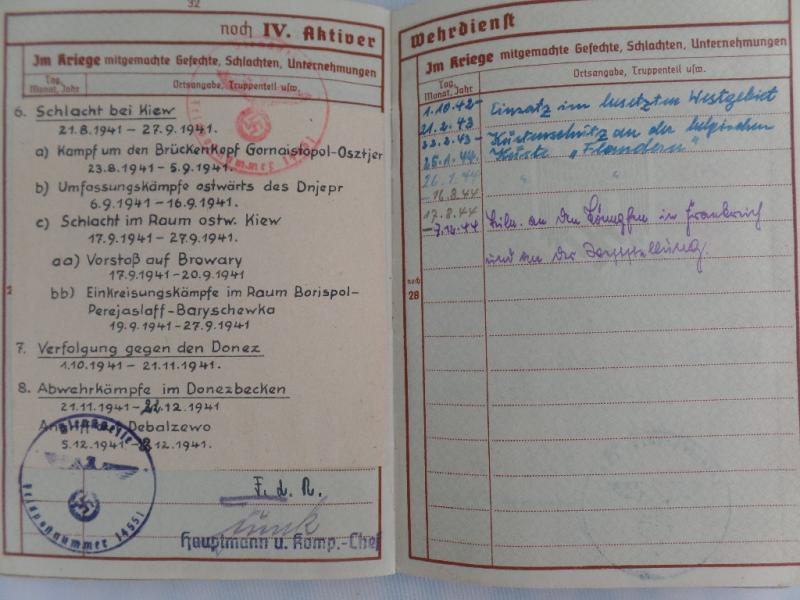 32
noch IV. Aktiver
Im Kriege mitgemachte Gefechte, Schlachten, Unternehmungen
Tag, Monat, Jahr
Ortsangabe, Truppenteil usw.
6. Schlacht bei Kiew
21.8.1941 – 27.9.1941.
a) Kampf um den Brückenkopf Gornaistopol-Osztjer
23.8.1941 – 5.9.1941.
b) Umfassungskämpfe ostwärts des Dnjepr
6.9.1941 – 16.9.1941.
c) Schlacht im Raum ostw. Kiew
17.9.1941 – 27.9.1941.
aa) Vorstoß auf Browary
17.9.1941 – 20.9.1941
bb) Einkreisungskämpfe im Raum Borispol-
Perejaslaff-Baryschewka
19.9.1941 – 27.9.1941
7. Verfolgung gegen den Donez
1.10.1941 – 21.11.1941.
8. Abwehrkämpfe im Donezbecken
21.11.1941 – 12.1941
Debalzewo
5.12.1941 – 12.1941.
Dienststelle
Feldpostnummer 14551
F. d. R.
Hauptmann u. Komp.-Chef
Dienststelle
Feldpostnummer 14551
Wehrdienst
Im Kriege mitgemachte Gefechte, Schlachten, Unternehmungen
Tag, Monat, Jahr
Ortsangabe, Truppenteil usw.
1.10.42 – Einsatz im besetzten Westgebiet
21.2.43
22.2.43 – Küstenschutz an der belgischen
25.1.44 Küste „Flandern"
26.1.44 " "
– 16.8.44
17.8.44
– 7.12.44 Teiln. an den Kämpfen in Frankreich
und an der
noch
28